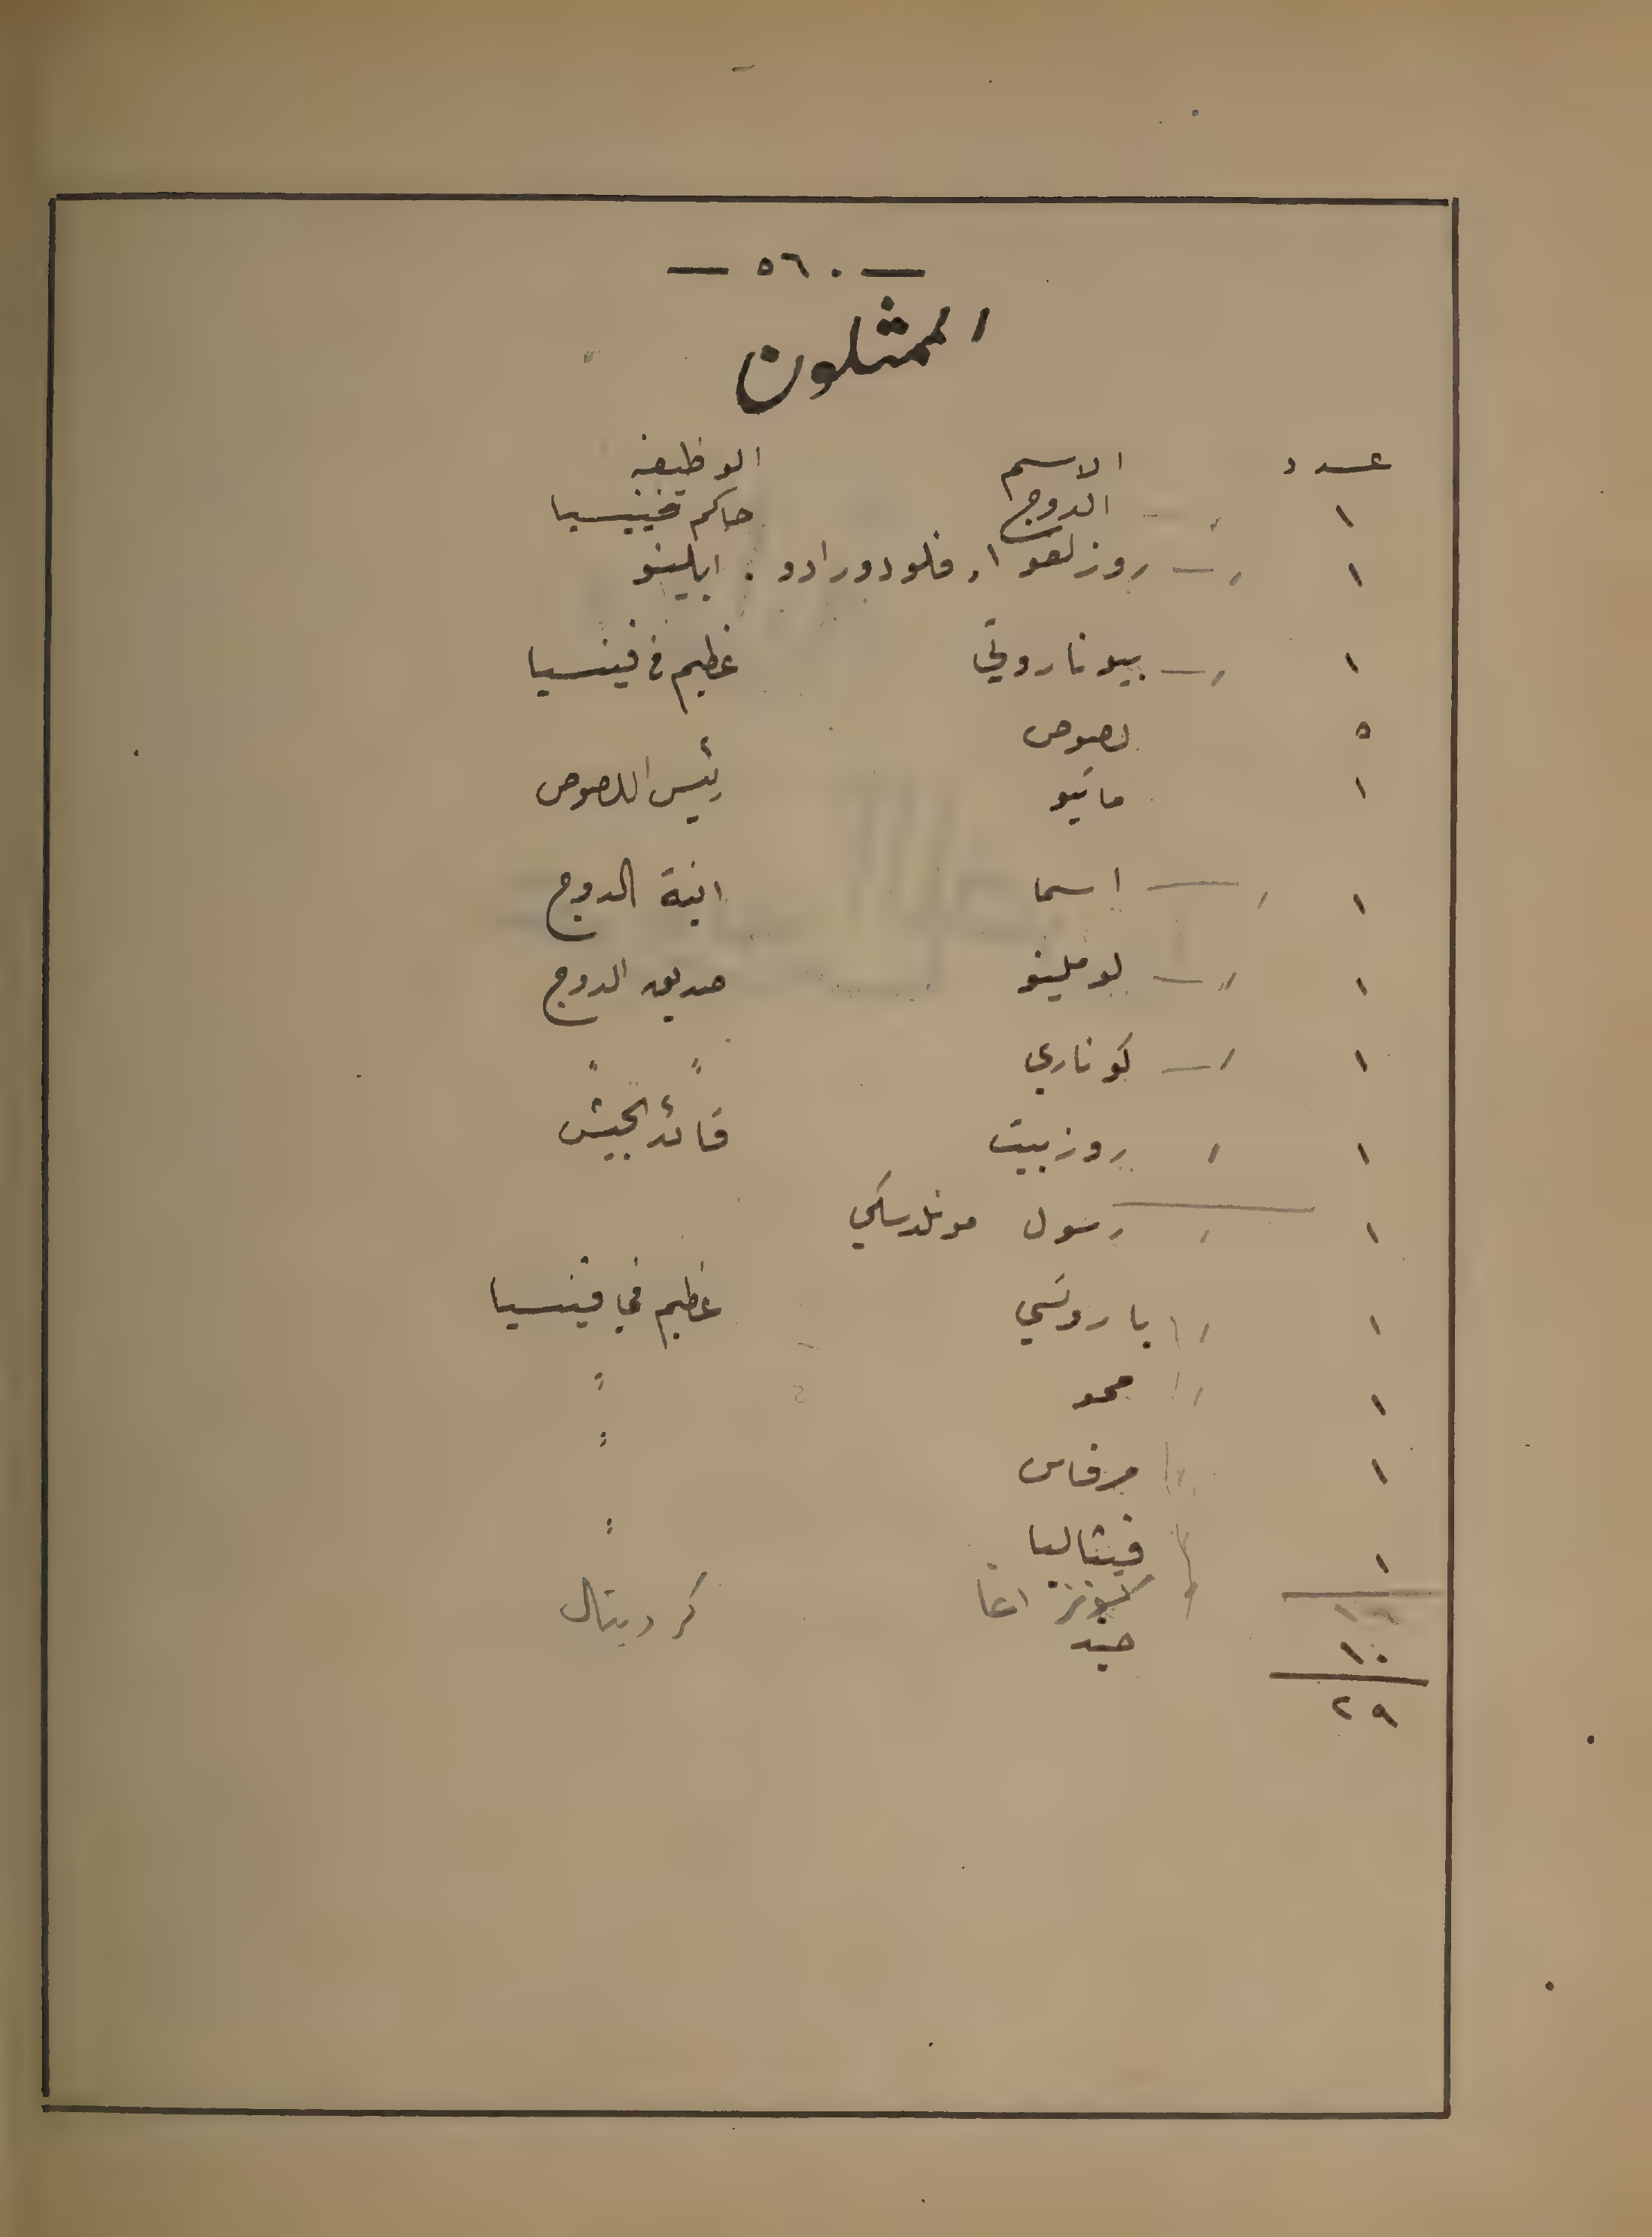 — ٠ ٥٦ —
الممثلون
عدد الاسم الوظيفه
١ الدوج حاكم فينيسيا
١ روزلعو ا, فلودورادو . ابلينو
١ بيوناروتي عظيم في فينسيا
٥ لصوص
١ ماتيو رئيس اللصوص
١ اسما ابنة الدوج
١ لوملينو صديق الدوج
١ كوناري " "
١ روزبيت قائد الجيش
١ رسول مونلدسكي
١ باروتسي عظيم في فينسيا
١ محمو "
١ مرقاس "
١ فيتاليا "
اغا كردينال
جند ١٠
٢٩